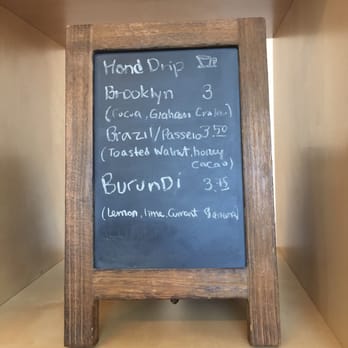 Hand Drip
Brooklyn 3
(Cocoa, Graham Cracker)
Brazil/Passeio 3.50
(Toasted Walnut, honey
cacao)
Burundi 3.75
(Lemon, lime, currant